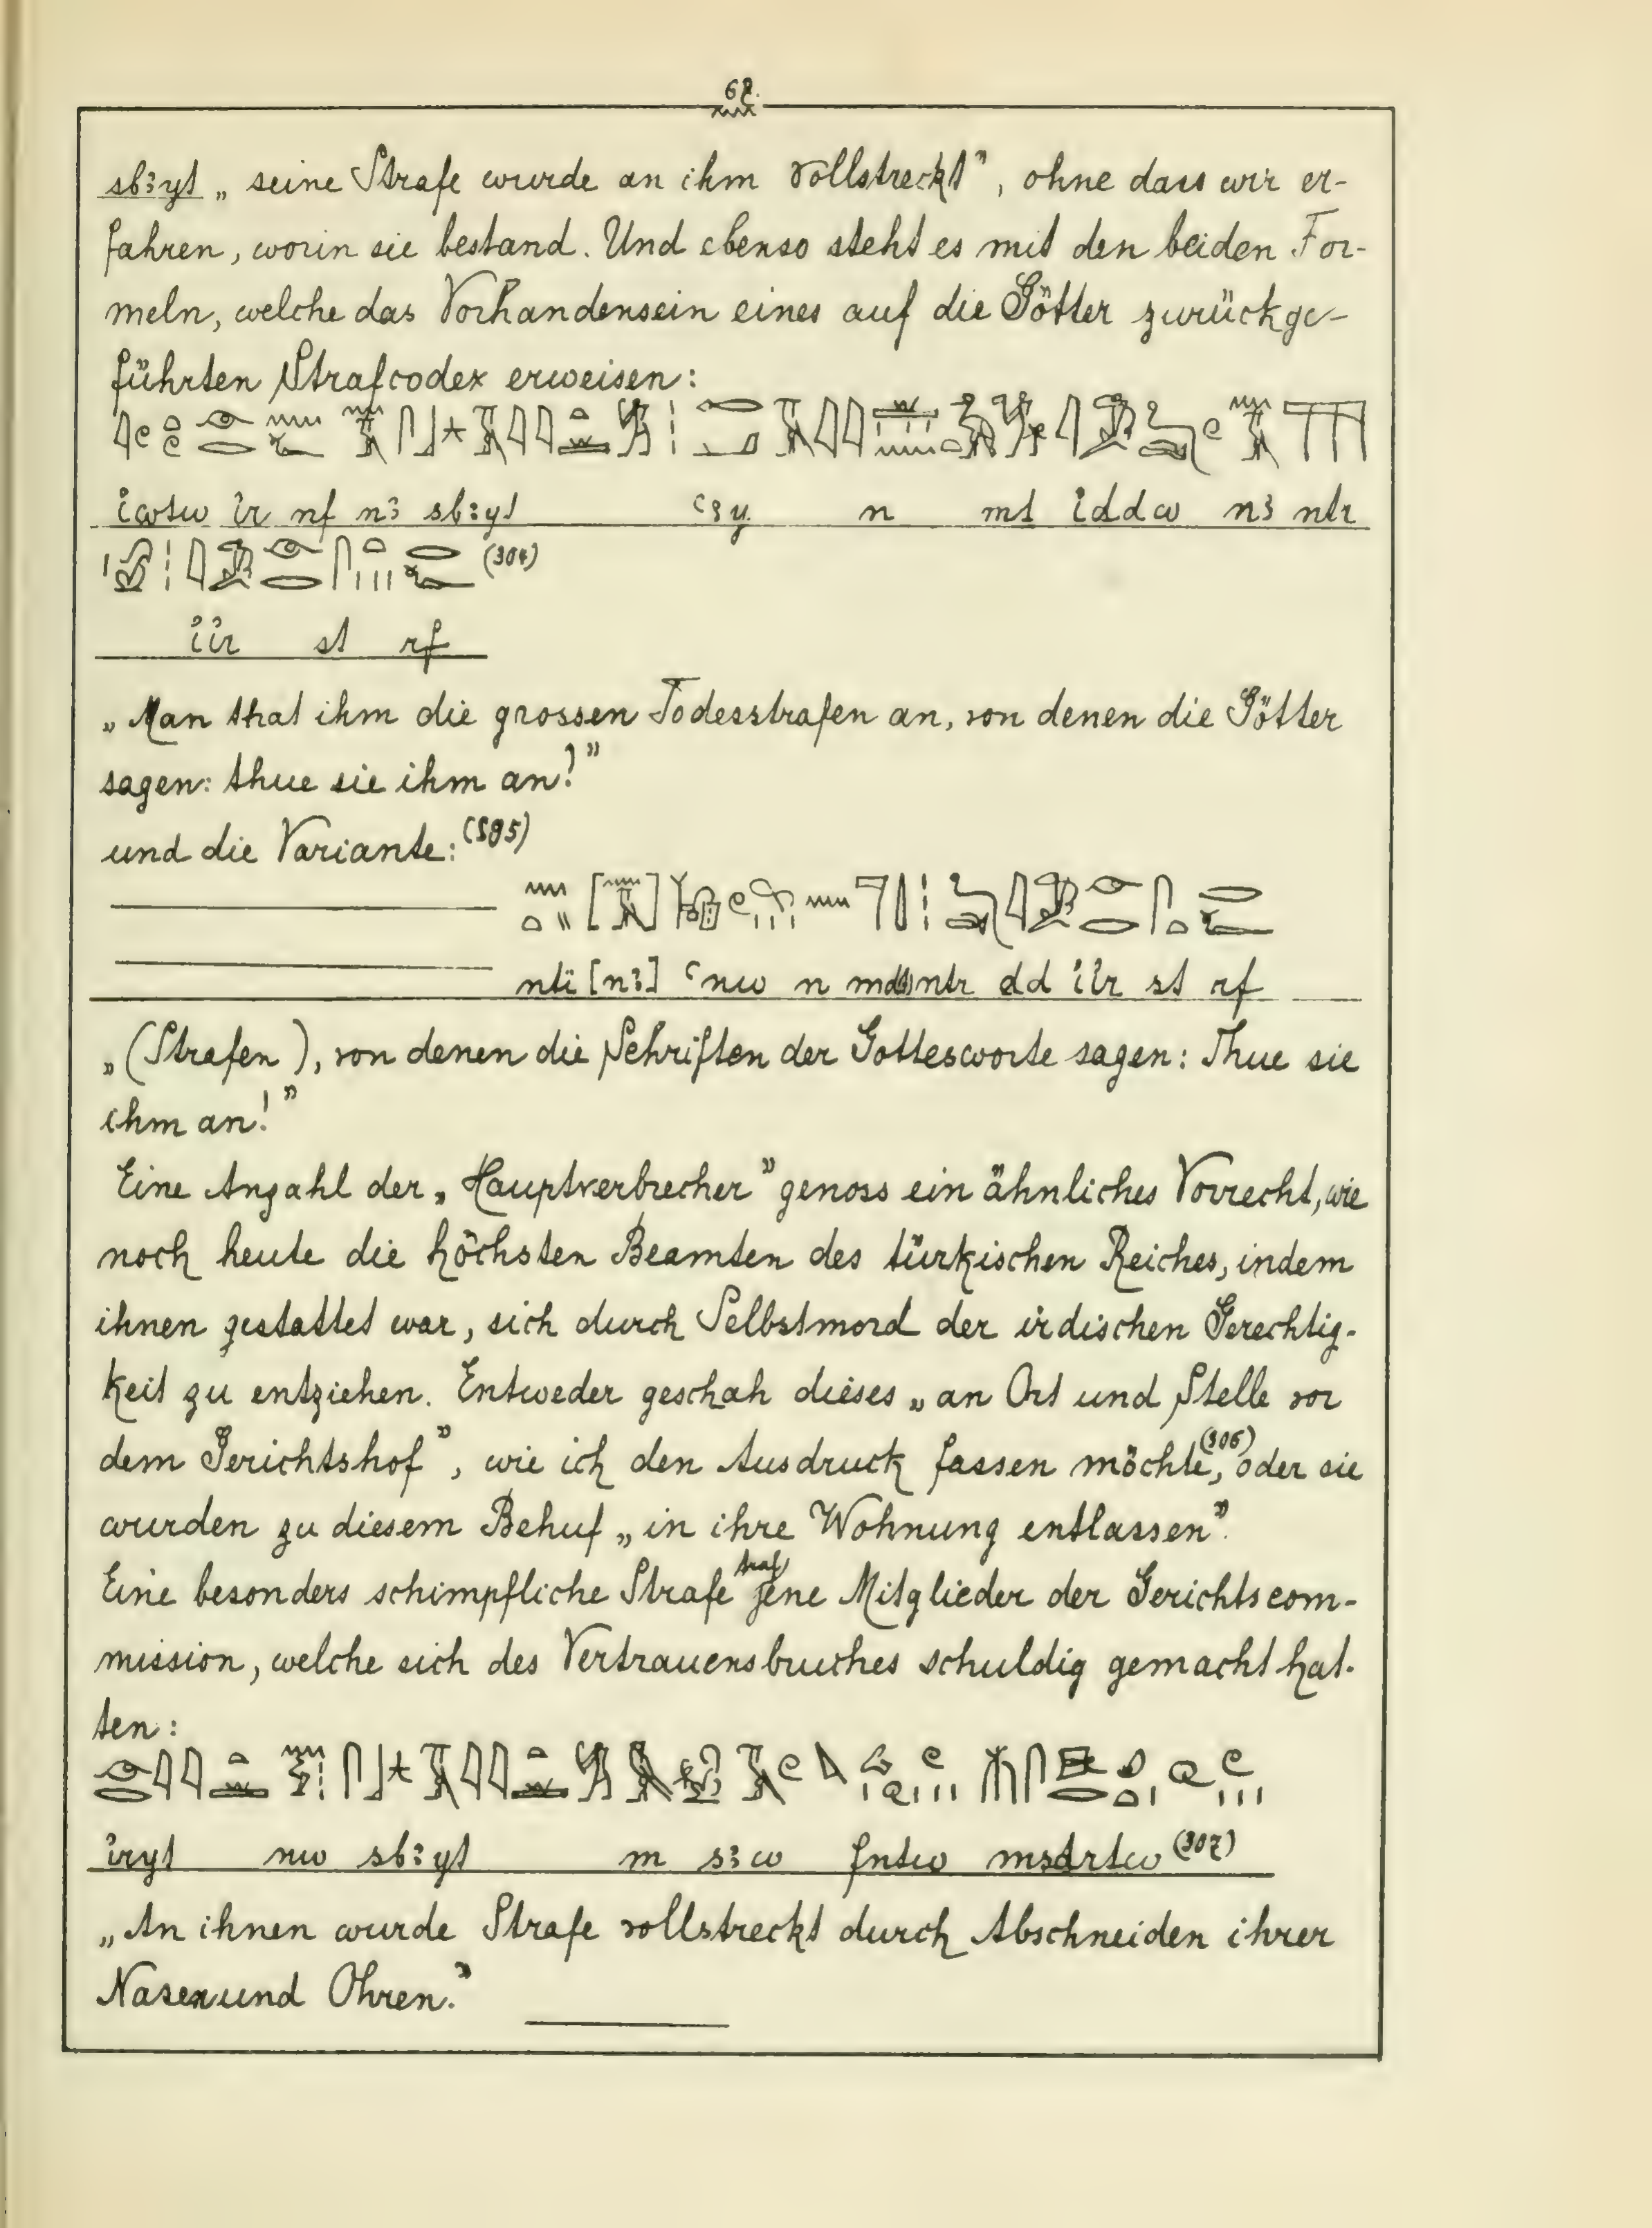 sbꜣyt „seine Strafe wurde an ihm vollstreckt”, ohne dass wir er-
fahren, worin sie bestand. Und ebenso steht es mit den beiden For-
meln, welche das Vorhandensein eines auf die Götter zurückge-
führten Strafcodex erweisen:
nf nꜣ sbꜣyt n mt nꜣ ntr
(304)
st rf
„Man that ihm die grossen Todesstrafen an, von denen die Götter
sagen: thue sie ihm an!”
und die Variante: (305)
[nꜣ] n dd st rf
„(Strafen), von denen die Schriften der Gottesworte sagen: Thue sie
ihm an!”
Eine Anzahl der „Hauptverbrecher” genoss ein ähnliches Vorrecht, wie
noch heute die höchsten Beamten des türkischen Reiches, indem
ihnen gestattet war, sich durch Selbstmord der irdischen Gerechtig-
keit zu entziehen. Entweder geschah dieses „an Ort und Stelle vor
dem Gerichtshof”, wie ich den Ausdruck fassen möchte, (306) oder sie
wurden zu diesem Behuf „in ihre Wohnung entlassen”.
Eine besonders schimpfliche Strafe traf jene Mitglieder der Gerichtscom-
mission, welche sich des Vertrauensbruches schuldig gemacht hat-
ten:
iryt nw sbꜣyt m sꜣw fntw msdrtw (307)
„An ihnen wurde Strafe vollstreckt durch Abschneiden ihrer
Nasen und Ohren.”